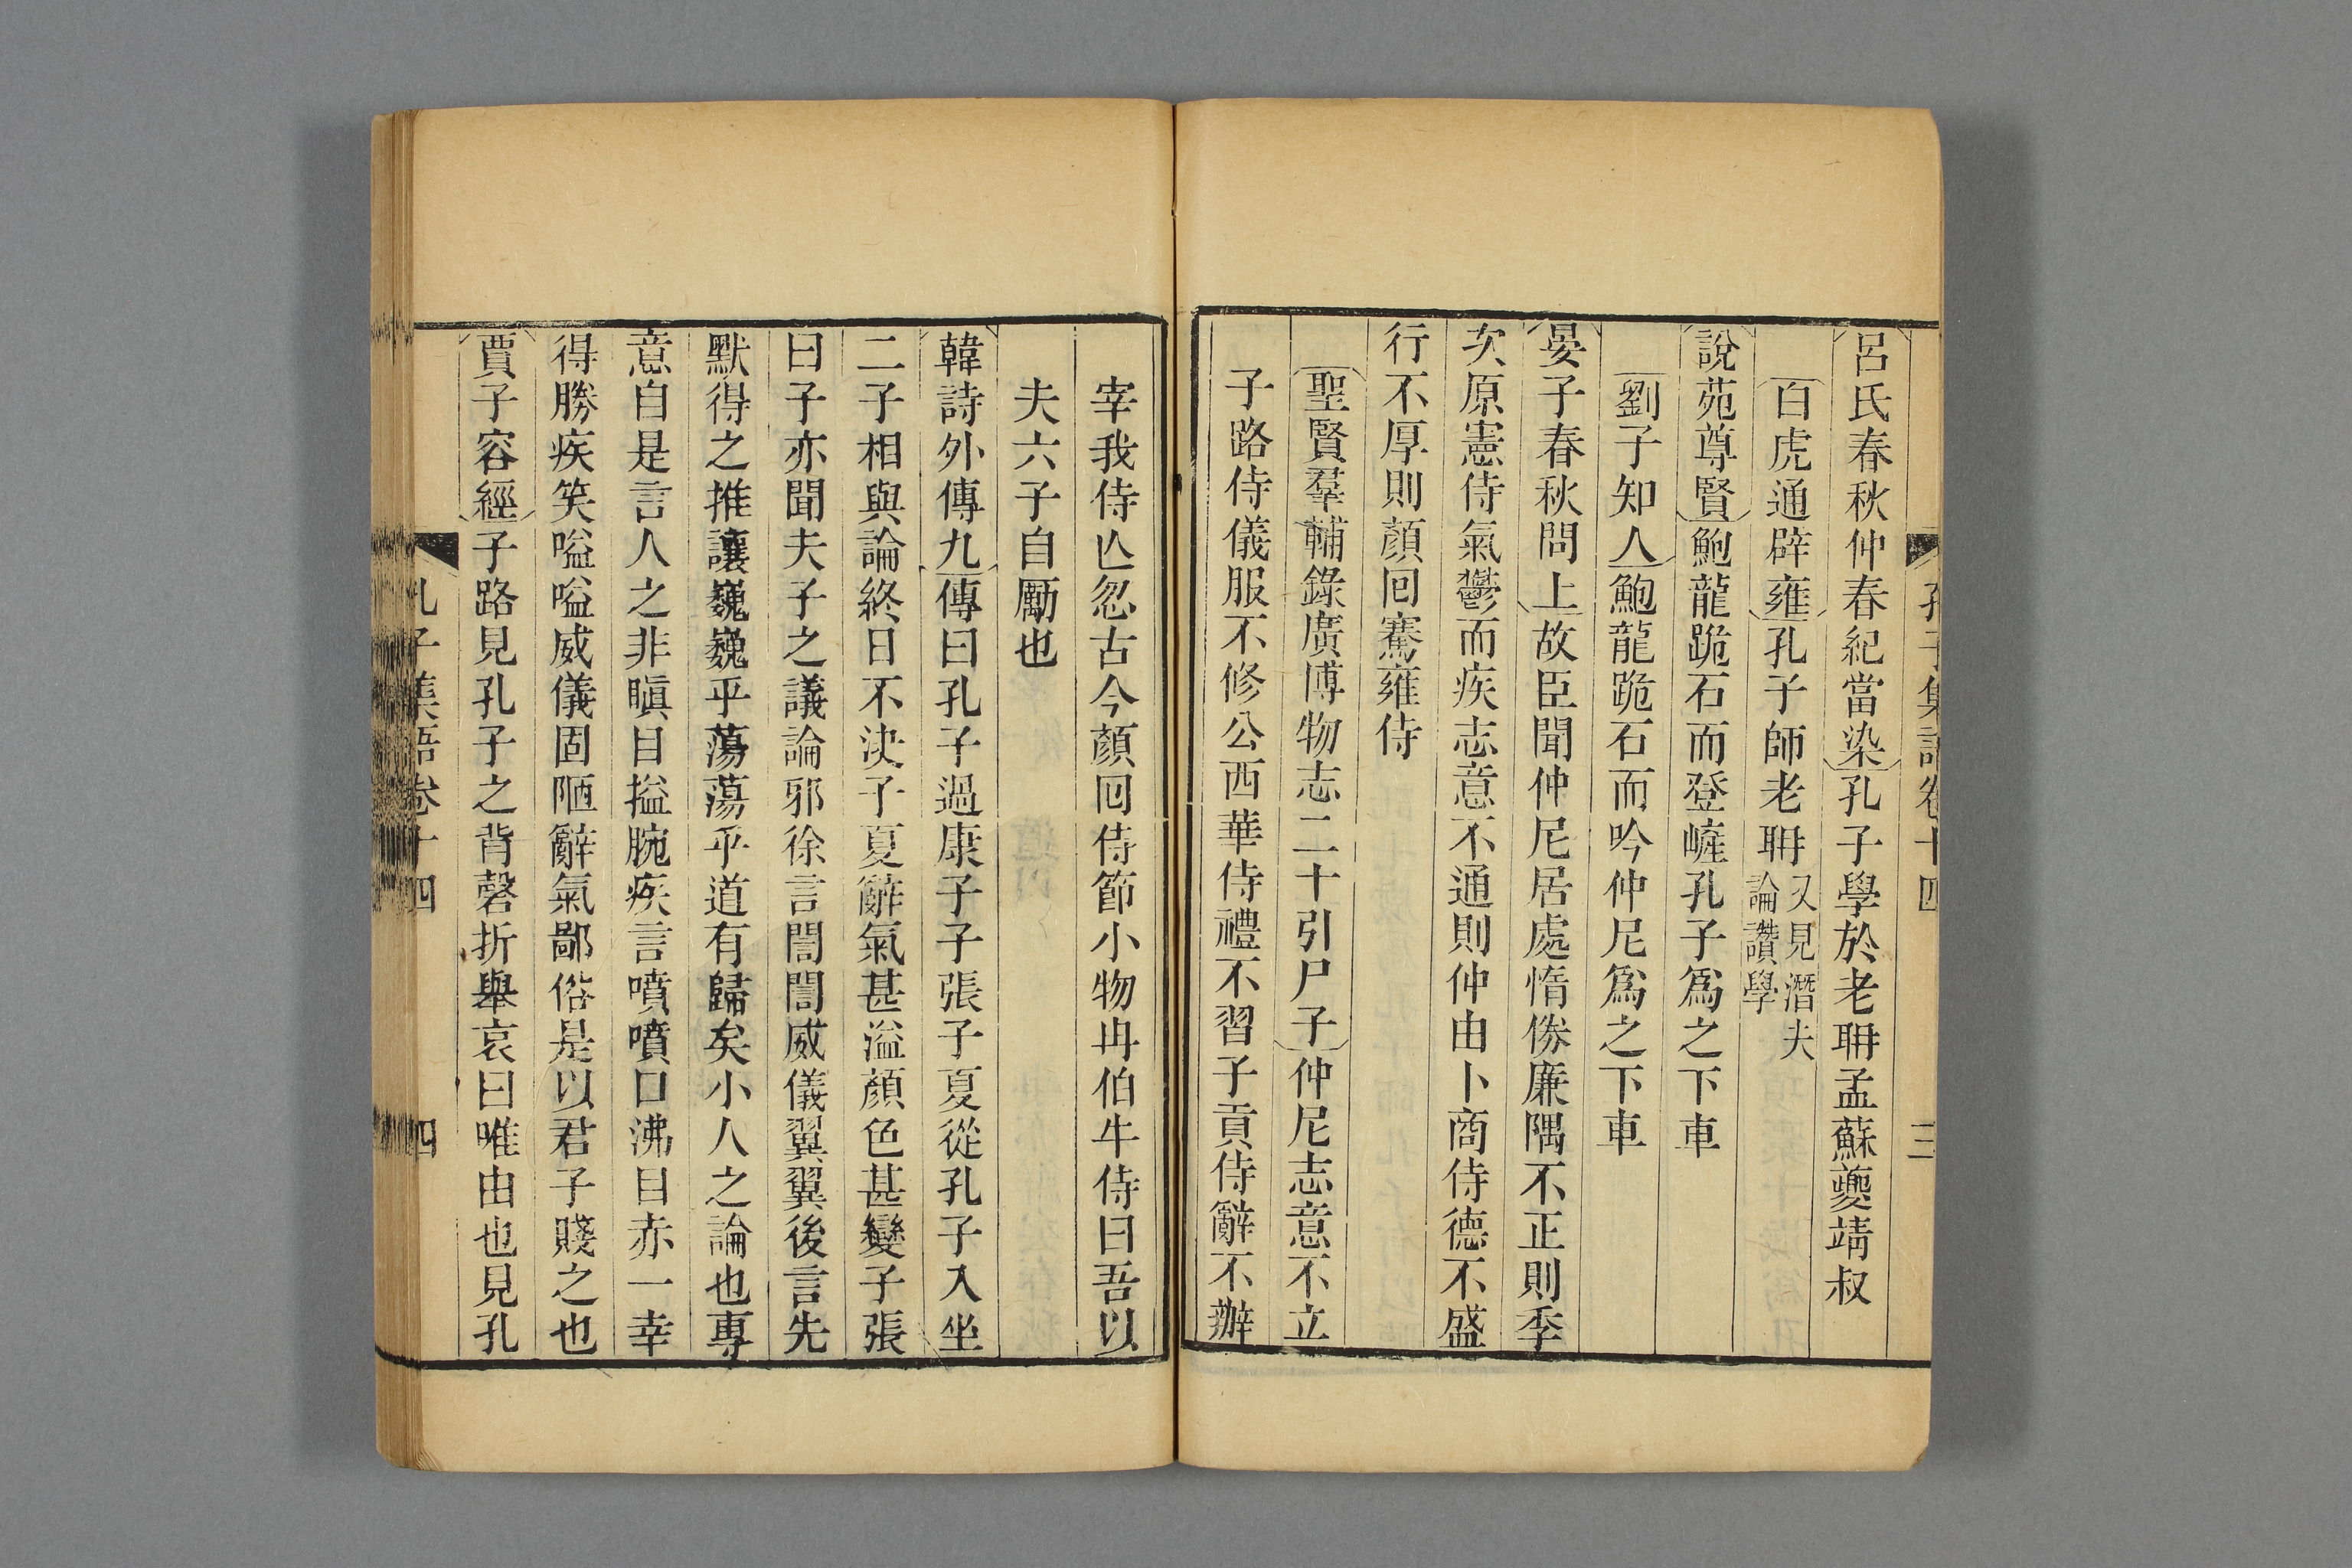 孔子集語卷十四 三
呂氏春秋仲春紀當染孔子學於老耼孟蘇夔靖叔
白虎通辟雍孔子師老耼又見潛夫論讚學
說苑尊賢鮑龍跪石而登嵼孔子爲之下車
劉子知人鮑龍跪石而吟仲尼爲之下車
晏子春秋問上故臣聞仲尼居處惰倦廉隅不正則季
次原憲侍氣鬱而疾志意不通則仲由卜商侍德不盛
行不厚則顏囘騫雍侍
聖賢羣輔錄廣博物志二十引尸子仲尼志意不立
子路侍儀服不修公西華侍禮不習子貢侍辭不辦
宰我侍亾忽古今顏囘侍節小物冉伯牛侍曰吾以
夫六子自勵也
韓詩外傳九傳曰孔子過康子子張子夏從孔子入坐
二子相與論終日不決子夏辭氣甚溢顏色甚變子張
曰子亦聞夫子之議論邪徐言誾誾威儀翼翼後言先
默得之推讓巍巍乎蕩蕩乎道有歸矣小人之論也專
意自是言人之非瞋目搤腕疾言噴噴口沸目赤一幸
得勝疾笑嗌嗌威儀固陋辭氣鄙俗是以君子賤之也
賈子容經子路見孔子之背磬折舉哀曰唯由也見孔
孔子集語卷十四 四